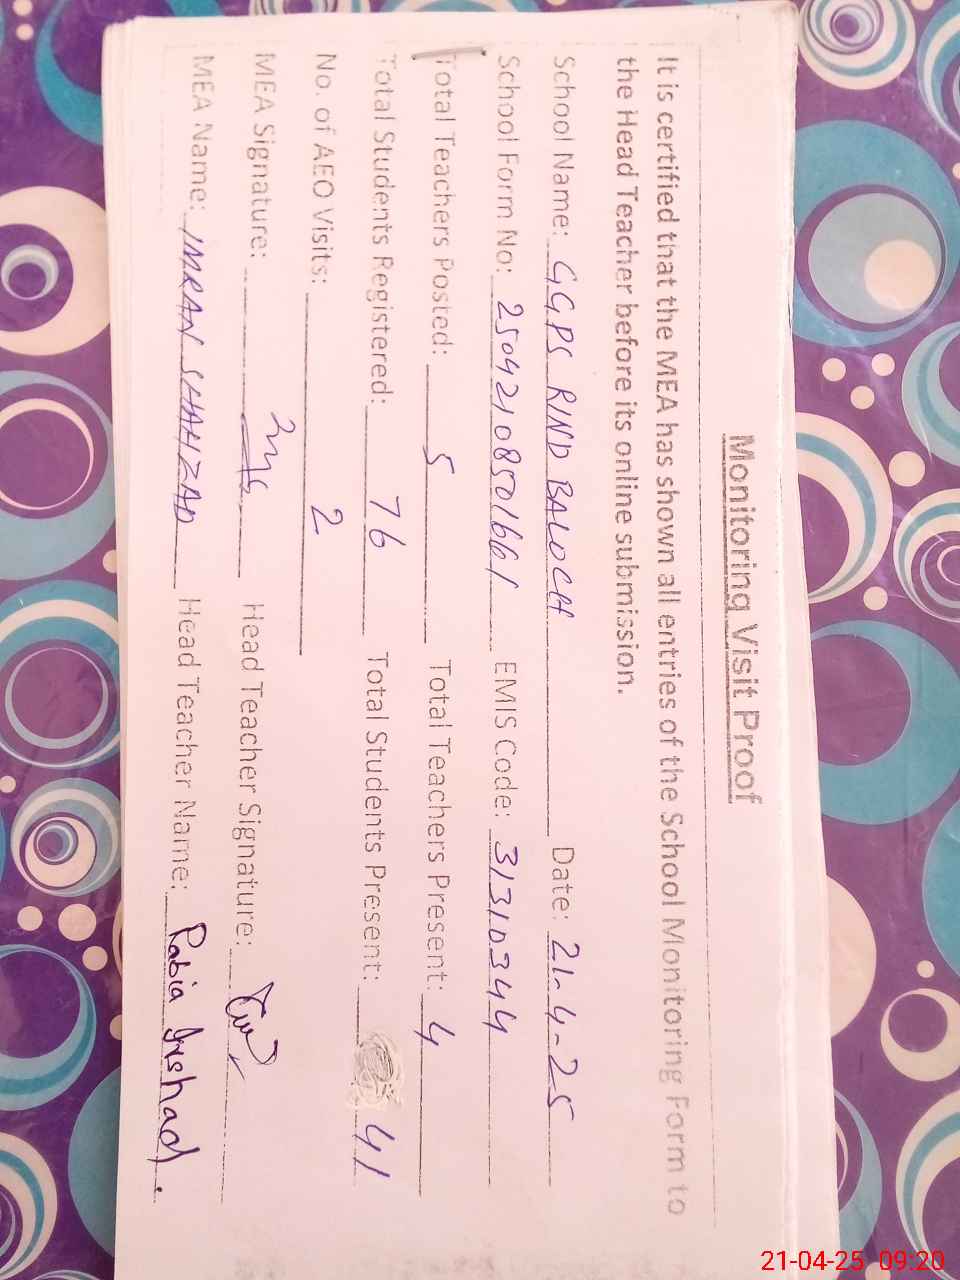 Monitoring Visit Proof
It is certified that the MEA has shown all entries of the School Monitoring Form to
the Head Teacher before its online submission.
School Name: GGPS RIND BALOCH Date: 21-4-25
School Form No: 25042108501661 EMIS Code: 31310344
Total Teachers Posted: 5 Total Teachers Present: 4
Total Students Registered: 76 Total Students Present: 41
No. of AEO Visits: 2
MEA Signature: Head Teacher Signature:
MEA Name: IMRAN SHAHZAD Head Teacher Name: Rabia Irshad.
21-04-25 09:20